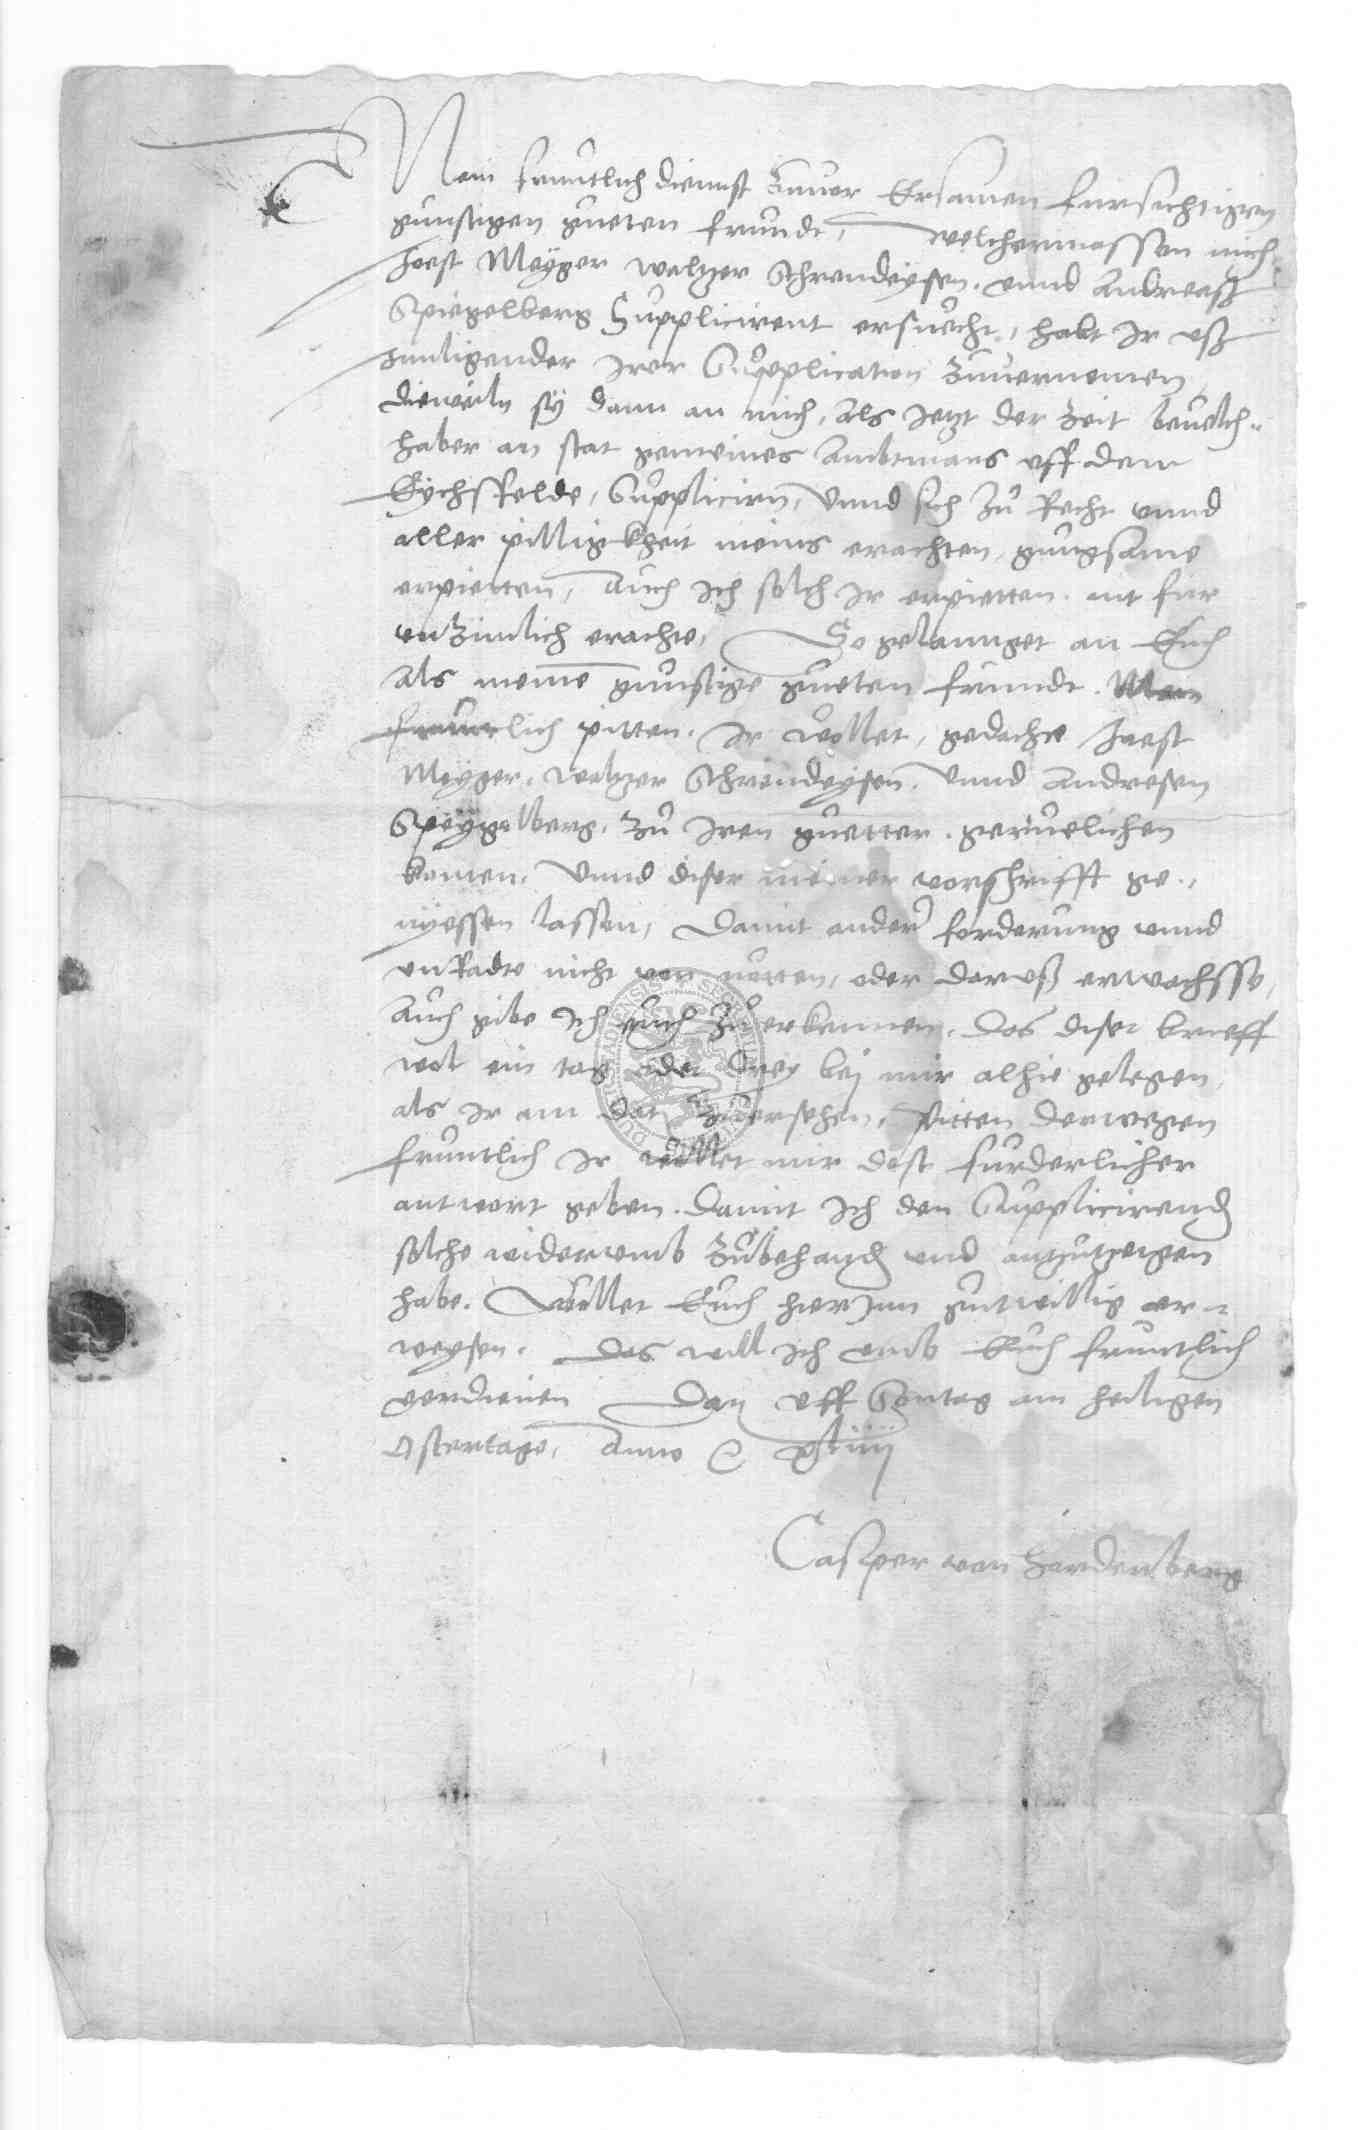 Mein fruntlich dienst zuuor Ersamen fursichtigen
gunstigen gueten frundt, welchermassen mich
Joest Meyger weltzer Schrendeysen. vnnd Andreaß
Spiegelberg Supplicirent ersucht, habt Ir vß
Innligender Irer Supplication zuuernemen
dieweiln sy dann an mich, als Jetzt der Zeit beuelch-
haber an stat gemeines Ambtmans vff dem
Eychsfelde, Suppliciren, Vnnd sich zu Recht vnnd
aller pilligkheit meins erachten, gnugsame
erpietten, Auch Ich solch Ir erpietten nit fur
vnzimlich erachte, So gelannget an Euch
als meine gunstige gueten frundt. Mein
fruntlich pitten. Ir wollet, gedachte Joest
Meyger, weltzer Schrindeysen. Vnnd Andresen
Speygelberg, zu Iren guetter. geruelichen
komen. Vnnd diser meiner vorschrifft ge-,
nyessen lassen, Damit ander forderung vnnd
vnRadte nicht von notten, oder daruß erwachsse,
Auch gibe Ich euch zu erkennen. das diser brieff
wol ein tag oder drey bej mir alhie gelegen,
als Ir am dat zuersehen, pitten derwegen
fruntlich Ir wollet mir dest furderlicher
antwort geben. Damit Ich den Supplicirend
solche widerumb zubehand vnd antzutzeigen
habe. Wollet Euch hierInn gutwillig er-
weysen. Das will Ich vmb Euch fruntlich
verdienen Dat vff Sontag am heiligen
Ostertage, Anno &c xliiij
Casper von Hardenberg